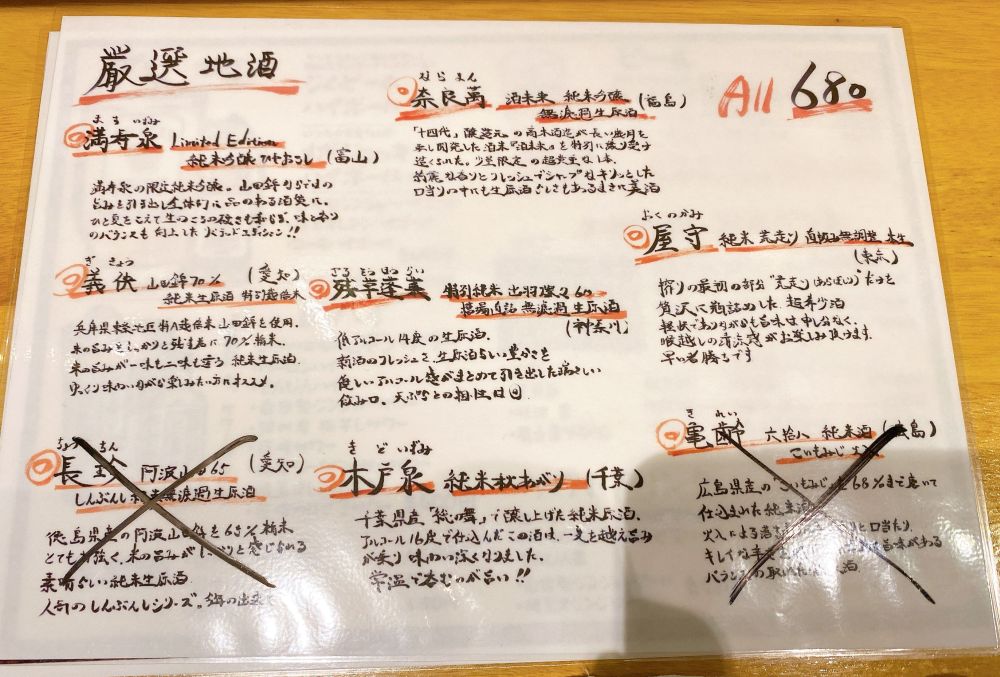 厳選地酒
All 680
まるいずみ
満寿泉 Limited Edition
純米吟醸ひやおろし (富山)
満寿泉の限定純米吟醸。山田錦
旨みを引き出し全体的に品のある酒質に。
ひと夏をこえて生のころの
のバランスも向上したバランドエディション!!
ならまん
奈良萬 酒未来 純米吟醸 (福島)
無濾過生原酒
「十四代」醸造元の高木酒造が長い歳月を
開発した酒米『酒未来』を特別に譲り受け
造られた。少量限定の超貴重な一本。
華麗な香りとフレッシュでシャープなキリッとした
口当りの中にも生原酒らしさもあるまさに美酒
おくのかみ
屋守 純米 荒走り 直汲み無調整 本生
(東京)
搾りの最初の部分"荒走り(あらばしり)"だけを
贅沢に瓶詰めした超希少酒
軽快でありながらも旨味は申し分なく、
喉越しの清涼感がお楽しみ頂けます。
早い者勝ちです
ぎきょう
義侠 山田錦70% (愛知)
純米生原酒 特別栽培米
兵庫県東条地区特A栽培米山田錦を使用。
米の旨みをしっかりと残す為に70%精米。
米の旨みが一味も二味も違う純米生原酒。
じっくり味わいながら楽しみたい方にオススメ。
ざるそうほうらい
残草蓬莱 特別純米 出羽燦々60
槽場直詰無濾過生原酒
(神奈川)
低アルコール14度の生原酒。
新酒のフレッシュさ、生原酒らしい豊かさを
優しいアルコール感がまとめて引き出した瑞々しい
飲み口。天ぷらとの相性◎
ちょうちん
長珍 阿波山田65 (愛知)
しんぶんし 純米無濾過生原酒
徳島県産の阿波山田錦を65%精米
とても力強く、米の旨みがしっかりと感じられる
素晴らしい純米生原酒。
人気のしんぶんしシリーズ。今年の出来
きどいずみ
木戸泉 純米秋あがり (千葉)
千葉県産「総の舞」で醸し上げた純米原酒。
アルコール16度で仕込んだこの酒は、一夏を越え旨み
が乗り味わい深くなりました。
常温で呑むのが旨い!!
きれい
亀齢 六拾八 純米酒 (広島)
こいもみじ 火入
広島県産の"こいもみじ"を68%まで磨いて
仕込まれた純米酒
火入による落ち 口当たり。
キレイな 旨味がある
バランスの取れた 酒